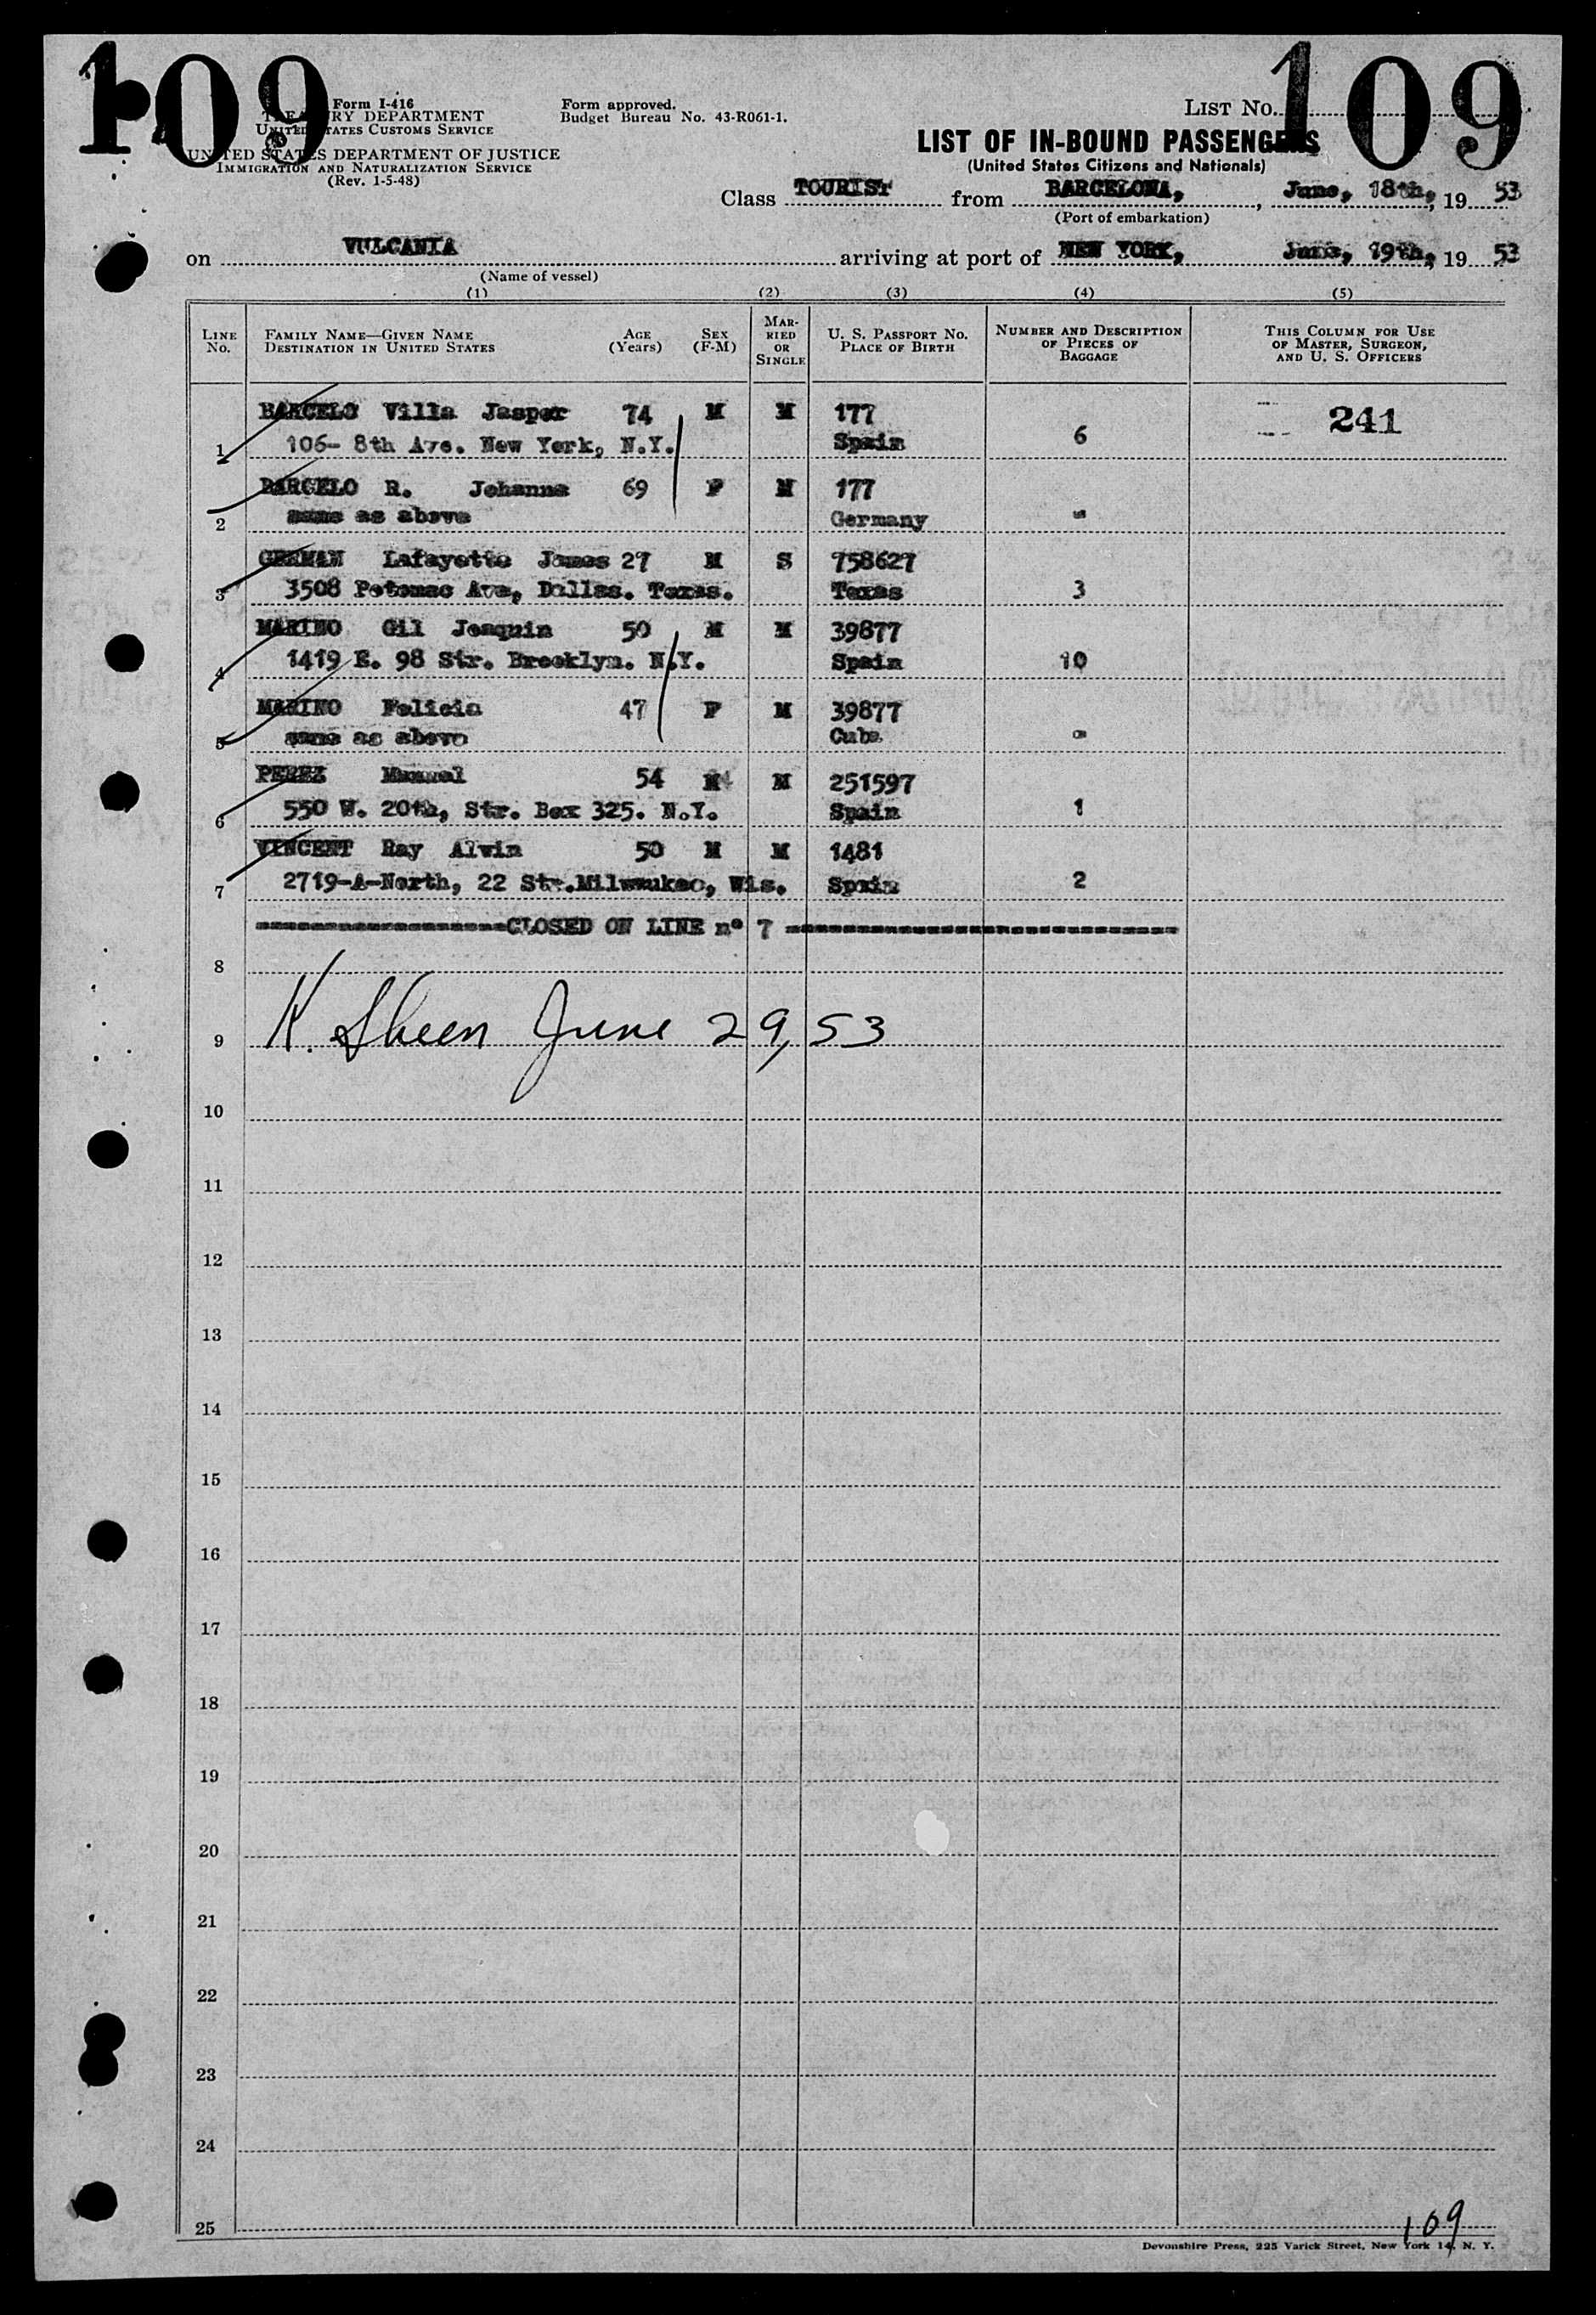 109
109
Form I-416
TREASURY DEPARTMENT
UNITED STATES CUSTOMS SERVICE
UNITED STATES DEPARTMENT OF JUSTICE
IMMIGRATION AND NATURALIZATION SERVICE
(Rev. 1-5-48)
Form approved.
Budget Bureau No. 43-R061-1.
LIST No.
LIST OF IN-BOUND PASSENGERS
(United States Citizens and Nationals)
Class TOURIST from BARCELONA, June, 18th, 19 53
(Port of embarkation)
on VULCANIA arriving at port of NEW YORK, 19 53
(Name of vessel)
(1) (2) (3) (4) (5)
LINE No. FAMILY NAME—GIVEN NAME DESTINATION IN UNITED STATES AGE (Years) SEX (F-M) MARRIED OR SINGLE U. S. PASSPORT No. PLACE OF BIRTH NUMBER AND DESCRIPTION OF PIECES OF BAGGAGE THIS COLUMN FOR USE OF MASTER, SURGEON, AND U. S. OFFICERS
BARCELO Villa Jasper 74 M M 177 241
1 106- 8th Ave. New York, N.Y. Spain 6
BARCELO R. Johanna 69 F M 177
2 same as above Germany "
GERMAN Lafayette James 27 M S 758627
3 3508 Potomac Ave, Dallas. Texas. Texas 3
MARINO Gil Joaquin 50 M M 39877
4 1419 E. 98 Str. Brooklyn. N.Y. Spain 10
MARINO Felicia 47 F M 39877
5 same as above Cuba "
PEREZ Manuel 54 M M 251597
6 550 W. 20th, Str. Box 325. N.Y. Spain 1
VINCENT Ray Alvin 50 M M 1481
7 2719-A-North, 22 Str. Milwaukee, Wis. Spain 2
CLOSED ON LINE nº 7
8
9 K. Sheen June 29, 53
10
11
12
13
14
15
16
17
18
19
20
21
22
23
24
25
109
Devonshire Press, 225 Varick Street, New York 14, N. Y.